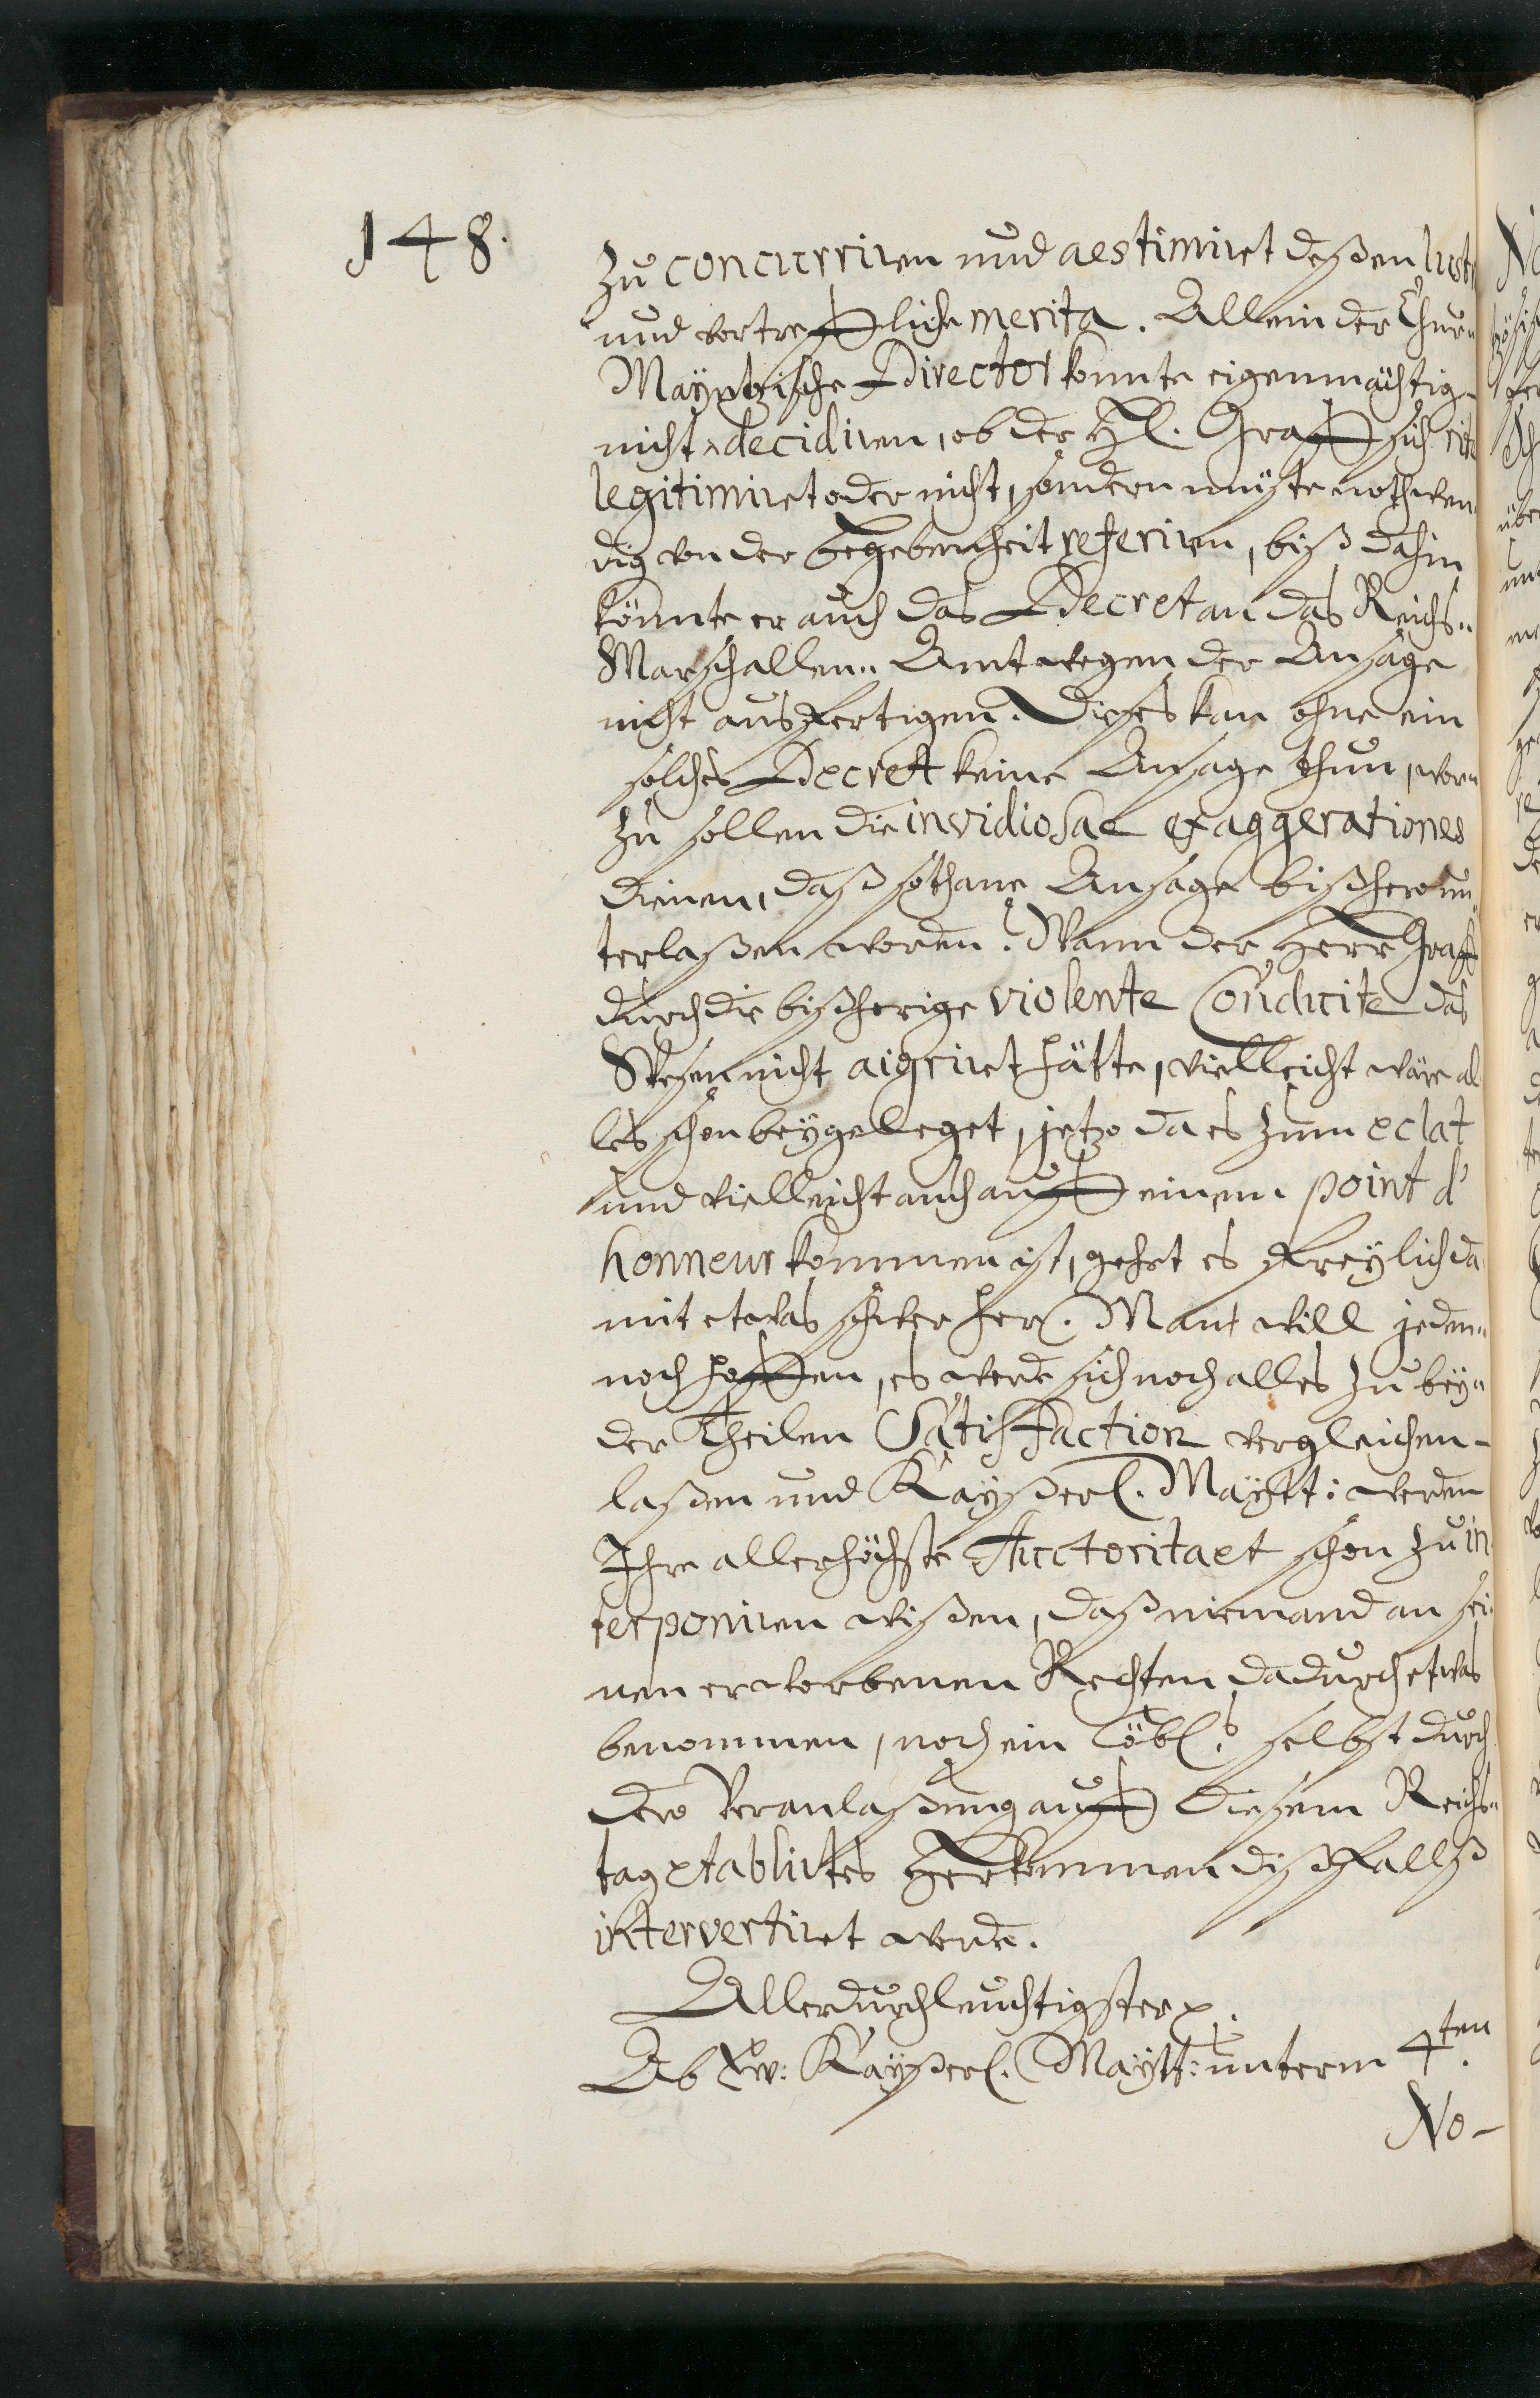 148.
zu concurriren und aestimiret deßen
und vortreffliche merita. Allein der Chur„
Mayntzische Director konnte eigenmächtig-
nicht decidiren, ob der H. Graff sich rite
legitimiret oder nicht, sondern müste nothwen„
dig von der begebenheit referiren, biß dahin
könnte er auch das Decret an das Reichs„
Marschallen„ Amt wegen der Ansage
nicht ausfertigen. Dieses kan ohne ein
solches Decret keine Ansage thun, wor„
zu sollen die invidiosae exaggerationes
dienen, daß sothane Ansage bißhero un„
terlaßen worden? Wann der Herr Graff
durch die bißherige violente Conduite das
Wesen nicht aigriret hätte, vielleicht wäre al
les schon beygeleget, jetzo da es zum eclat
und vielleicht auch auff einem point d'
honneur kommen ist, gehet es freylich da
mit etwas schwer her. Man will jeden„
noch hoffen, es werde sich noch alles zu bey„
der Theilen Satisfaction vergleichen-
laßen und Kayßerl. Maytt: werden
Ihre allerhöchste Auctoritaet schon zu in
terponiren wißen, daß niemand an sei
nen erworbenen Rechten dadurch etwas
benommen, noch ein löbl. selbst durch
dero Veranlaßung auff diesem Reichs„
tag etablirtes Herkommen dißfallß
intervertiret werde.
Allerdurchleuchtigster p.
Ob Ew: Kayßerl. Maytt: unterm 4ten
No-